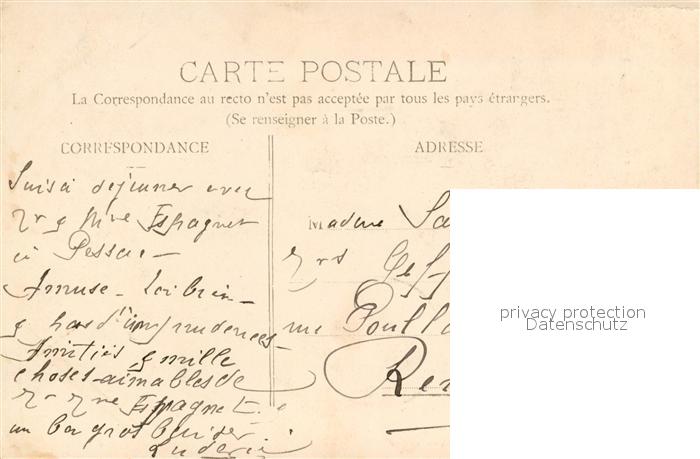 CARTE POSTALE
La Correspondance au recto n'est pas acceptée par tous les pays étrangers.
(Se renseigner à la Poste.)
CORRESPONDANCE
ADRESSE
Suis à dejeuner avec
Mr & Mme Espagnet
à Pessac -
Amuse-toi bien -
& pas d'imprudences -
Amitiés & mille
choses aimables de
Mr Mme Espagnet
un bon gros baiser
Madme
rue Poull
Ren
privacy protection
Datenschutz